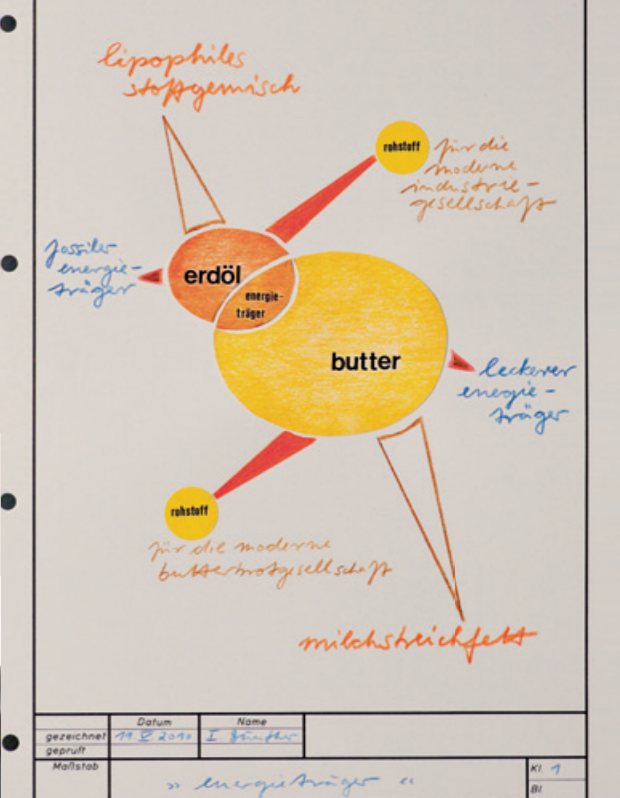 lipophiles
stoffgemisch
rohstoff
für die
moderne
industrie-
gesellschaft
fossiler
energie-
träger
erdöl
energie-
träger
butter
leckerer
energie-
träger
rohstoff
für die moderne
butterbrotgesellschaft
milchstreichfett
Datum
Name
gezeichnet
19. V 2010
I. Günther
geprüft
Maßstab
» energieträger «
Kl. 1
Bl.